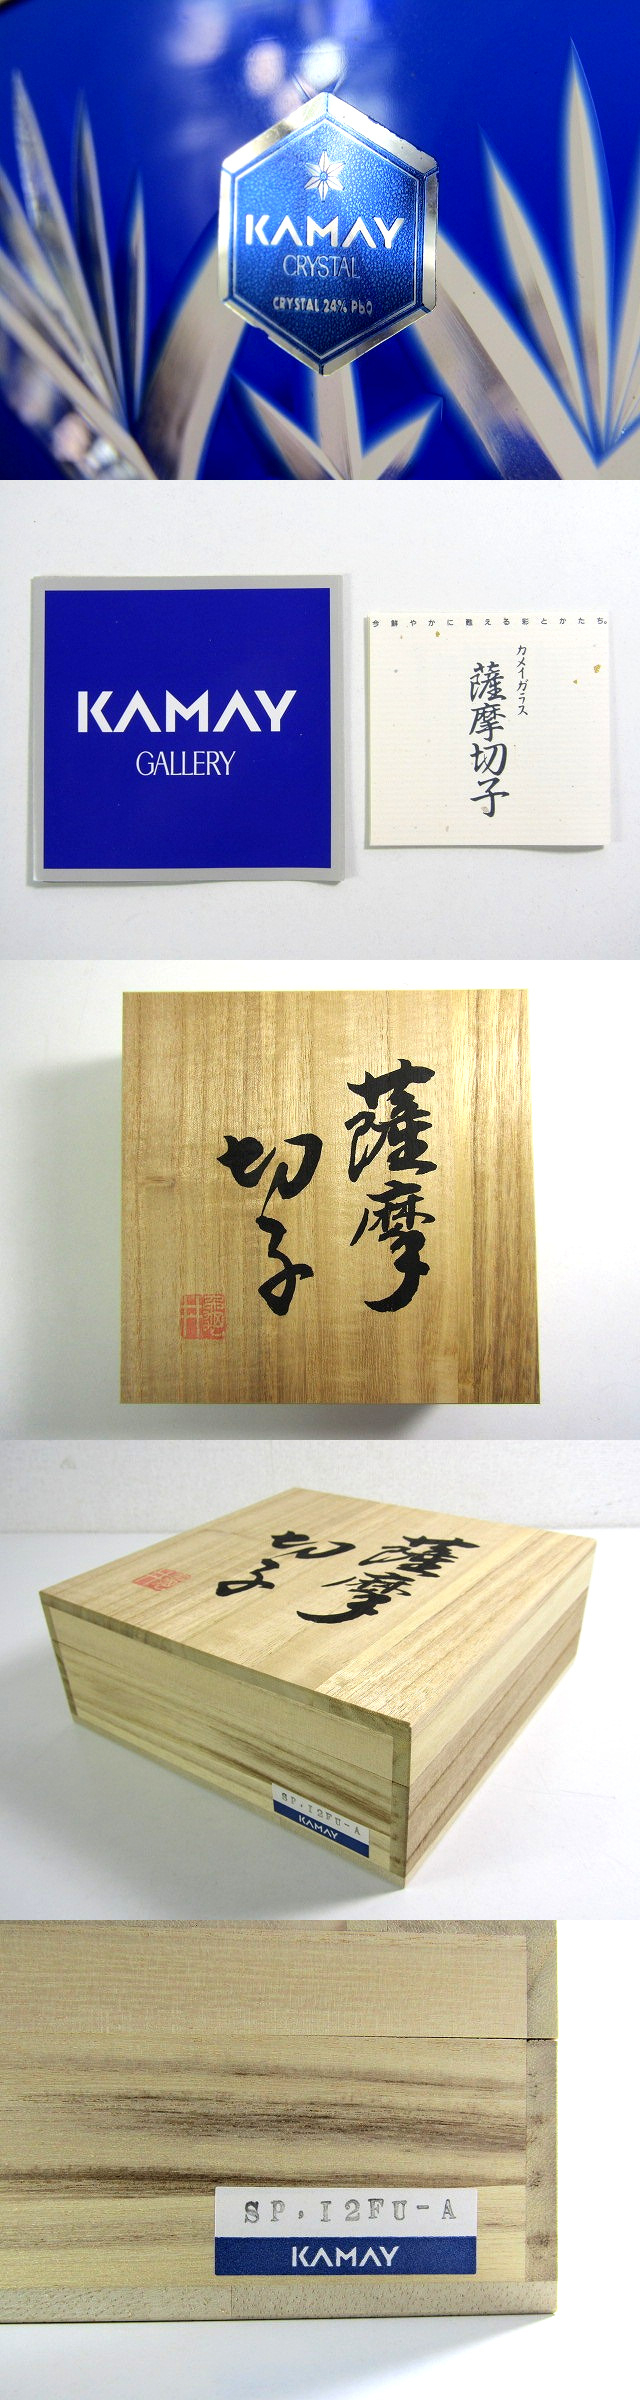 KAMAY
CRYSTAL
CRYSTAL 24% PbO
KAMAY
GALLERY
今鮮やかに甦える彩とかたち。
カメイガラス
薩摩切子
薩摩
切子
薩摩
切子
SP.12FU-A
KAMAY
SP.12FU-A
KAMAY